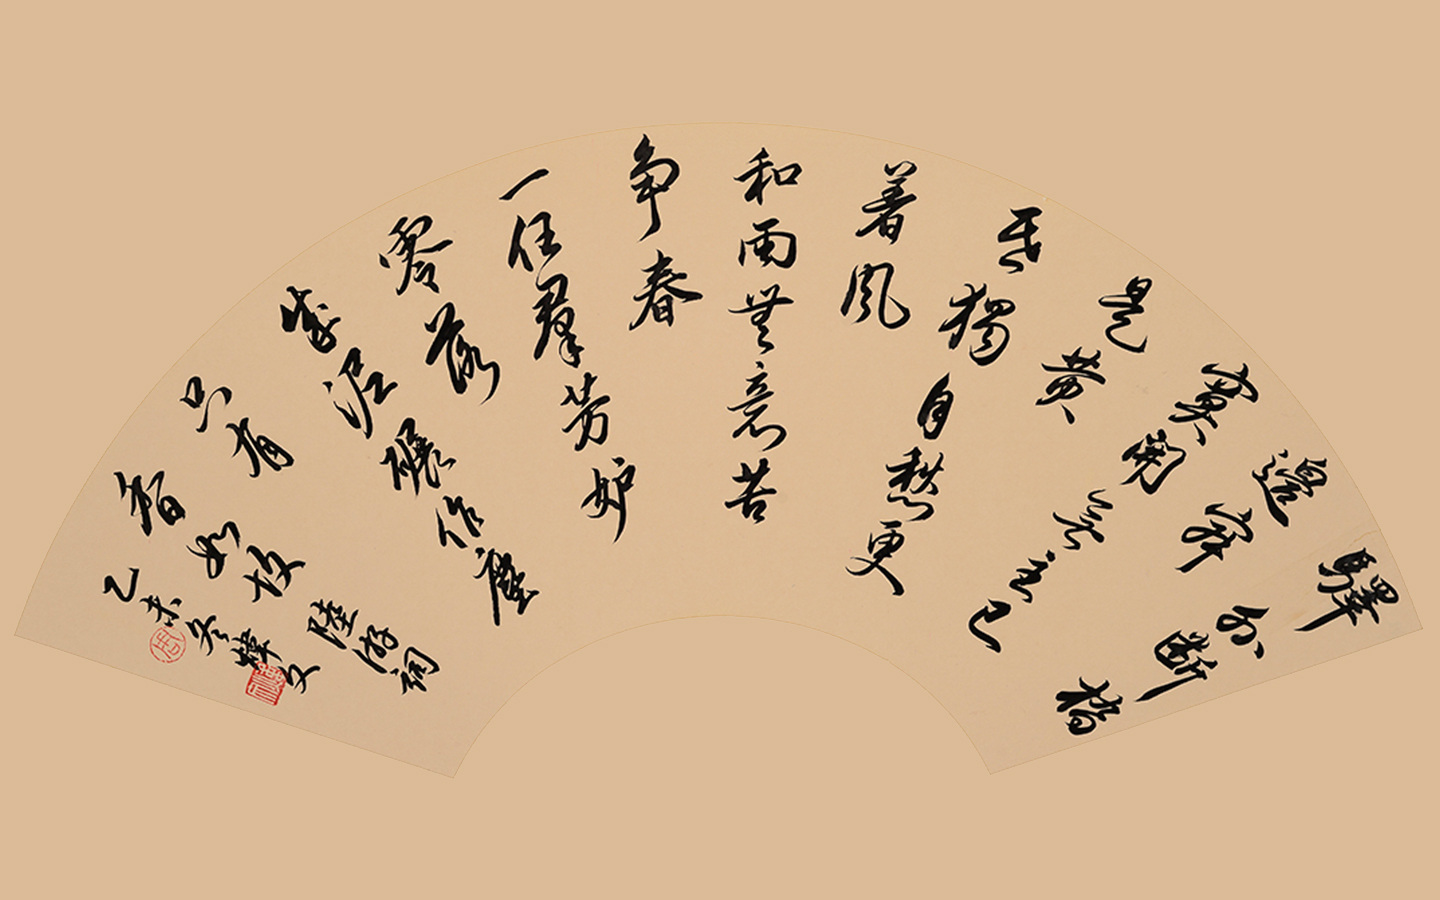 驛外斷橋
邊寂
寞開无主已
是黄
昏獨自愁更
着風
和雨無意苦
争春
一任羣芳妒
零落
成泥碾作塵
只有
香如故 陸游詞
乙未冬煒文